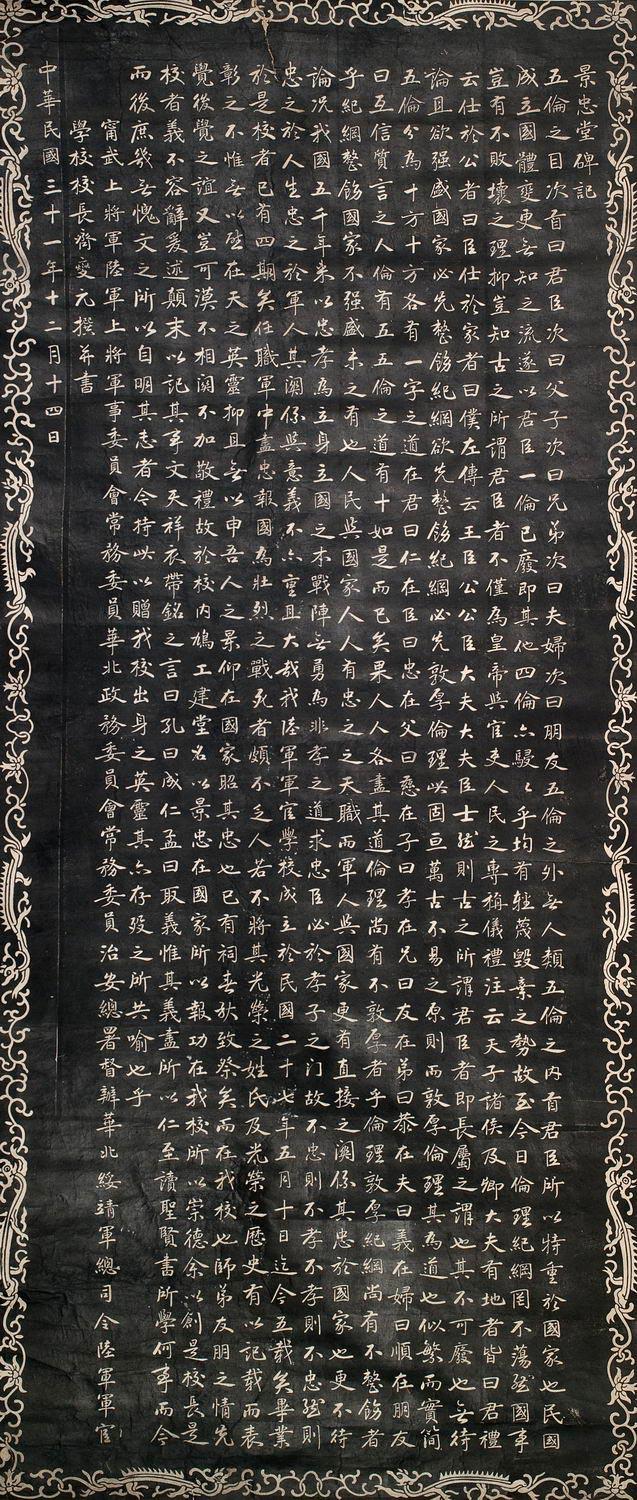 景忠堂碑記
五倫之目次首曰君臣次曰父子次曰兄弟次曰夫婦次曰朋友五倫之外無人類五倫之内首君臣所以特重於國家也民國
成立國體變更無知之流遂以君臣一倫已廢即其他四倫亦駸〻乎均有輕蔑毀棄之勢故至今日倫理紀綱罔不蕩然國事
豈有不敗壞之理抑豈知古之所謂君臣者不僅為皇帝與官吏人民之專稱儀禮注云天子諸侯及卿大夫有地者皆曰君禮
云仕於公者曰臣仕於家者曰僕左傳云王臣公公臣大夫大夫臣士然則古之所謂君臣者即長屬之謂也其不可廢也無待
論且欲强盛國家必先整飭紀綱欲先整飭紀綱必先敦厚倫理此固亘萬古不易之原則而敦厚倫理其為道也似繁而實簡
五倫分為十方十方各有一字之道在君曰仁在臣曰忠在父曰慈在子曰孝在兄曰友在弟曰恭在夫曰義在婦曰順在朋友
曰互信質言之人倫有五五倫之道有十如是而已矣果人人各盡其道倫理尚有不敦厚者乎倫理敦厚紀綱尚有不整飭者
乎紀綱整飭國家不强盛未之有也人民與國家人人有忠之之天職而軍人與國家更有直接之關係其忠於國家也更不待
論况我國五千年来以忠孝為立身立國之本戰陣無勇為非孝之道求忠臣必於孝子之门故不忠則不孝不孝則不忠然則
忠之於人生忠之於軍人其關係與意義不亦重且大哉我陸軍軍官學校成立於民國二十七年五月十日迄今五載矣畢業
於是校者已有四期矣任職軍中盡忠報國為壯烈之戰死者頗不乏人若不將其光榮之姓氏及光榮之歷史有以記載而表
彰之不惟無以慰在天之英靈抑且無以申吾人之景仰在國家昭其忠也已有祠春秋致祭矣而在我校也師弟友朋之情先
覺後覺之誼又豈可漠不相關不加敬禮故於校内鳩工建堂名以景忠在國家所以報功在我校所以崇德余以創是校長是
校者義不容辭爰述顛末以記其事文天祥衣帶銘之言曰孔曰成仁孟曰取義惟其義盡所以仁至讀聖賢書所學何事而今
而後庶幾無愧文之所以自明其志者今持此以贈我校出身之英靈其亦存殁之所共喻也乎
甯武上將軍陸軍上將軍事委員會常務委員華北政務委員會常務委員治安總署督辦華北綏靖軍總司令陸軍軍官
學校校長齊燮元撰并書
中華民國三十一年十二月十四日